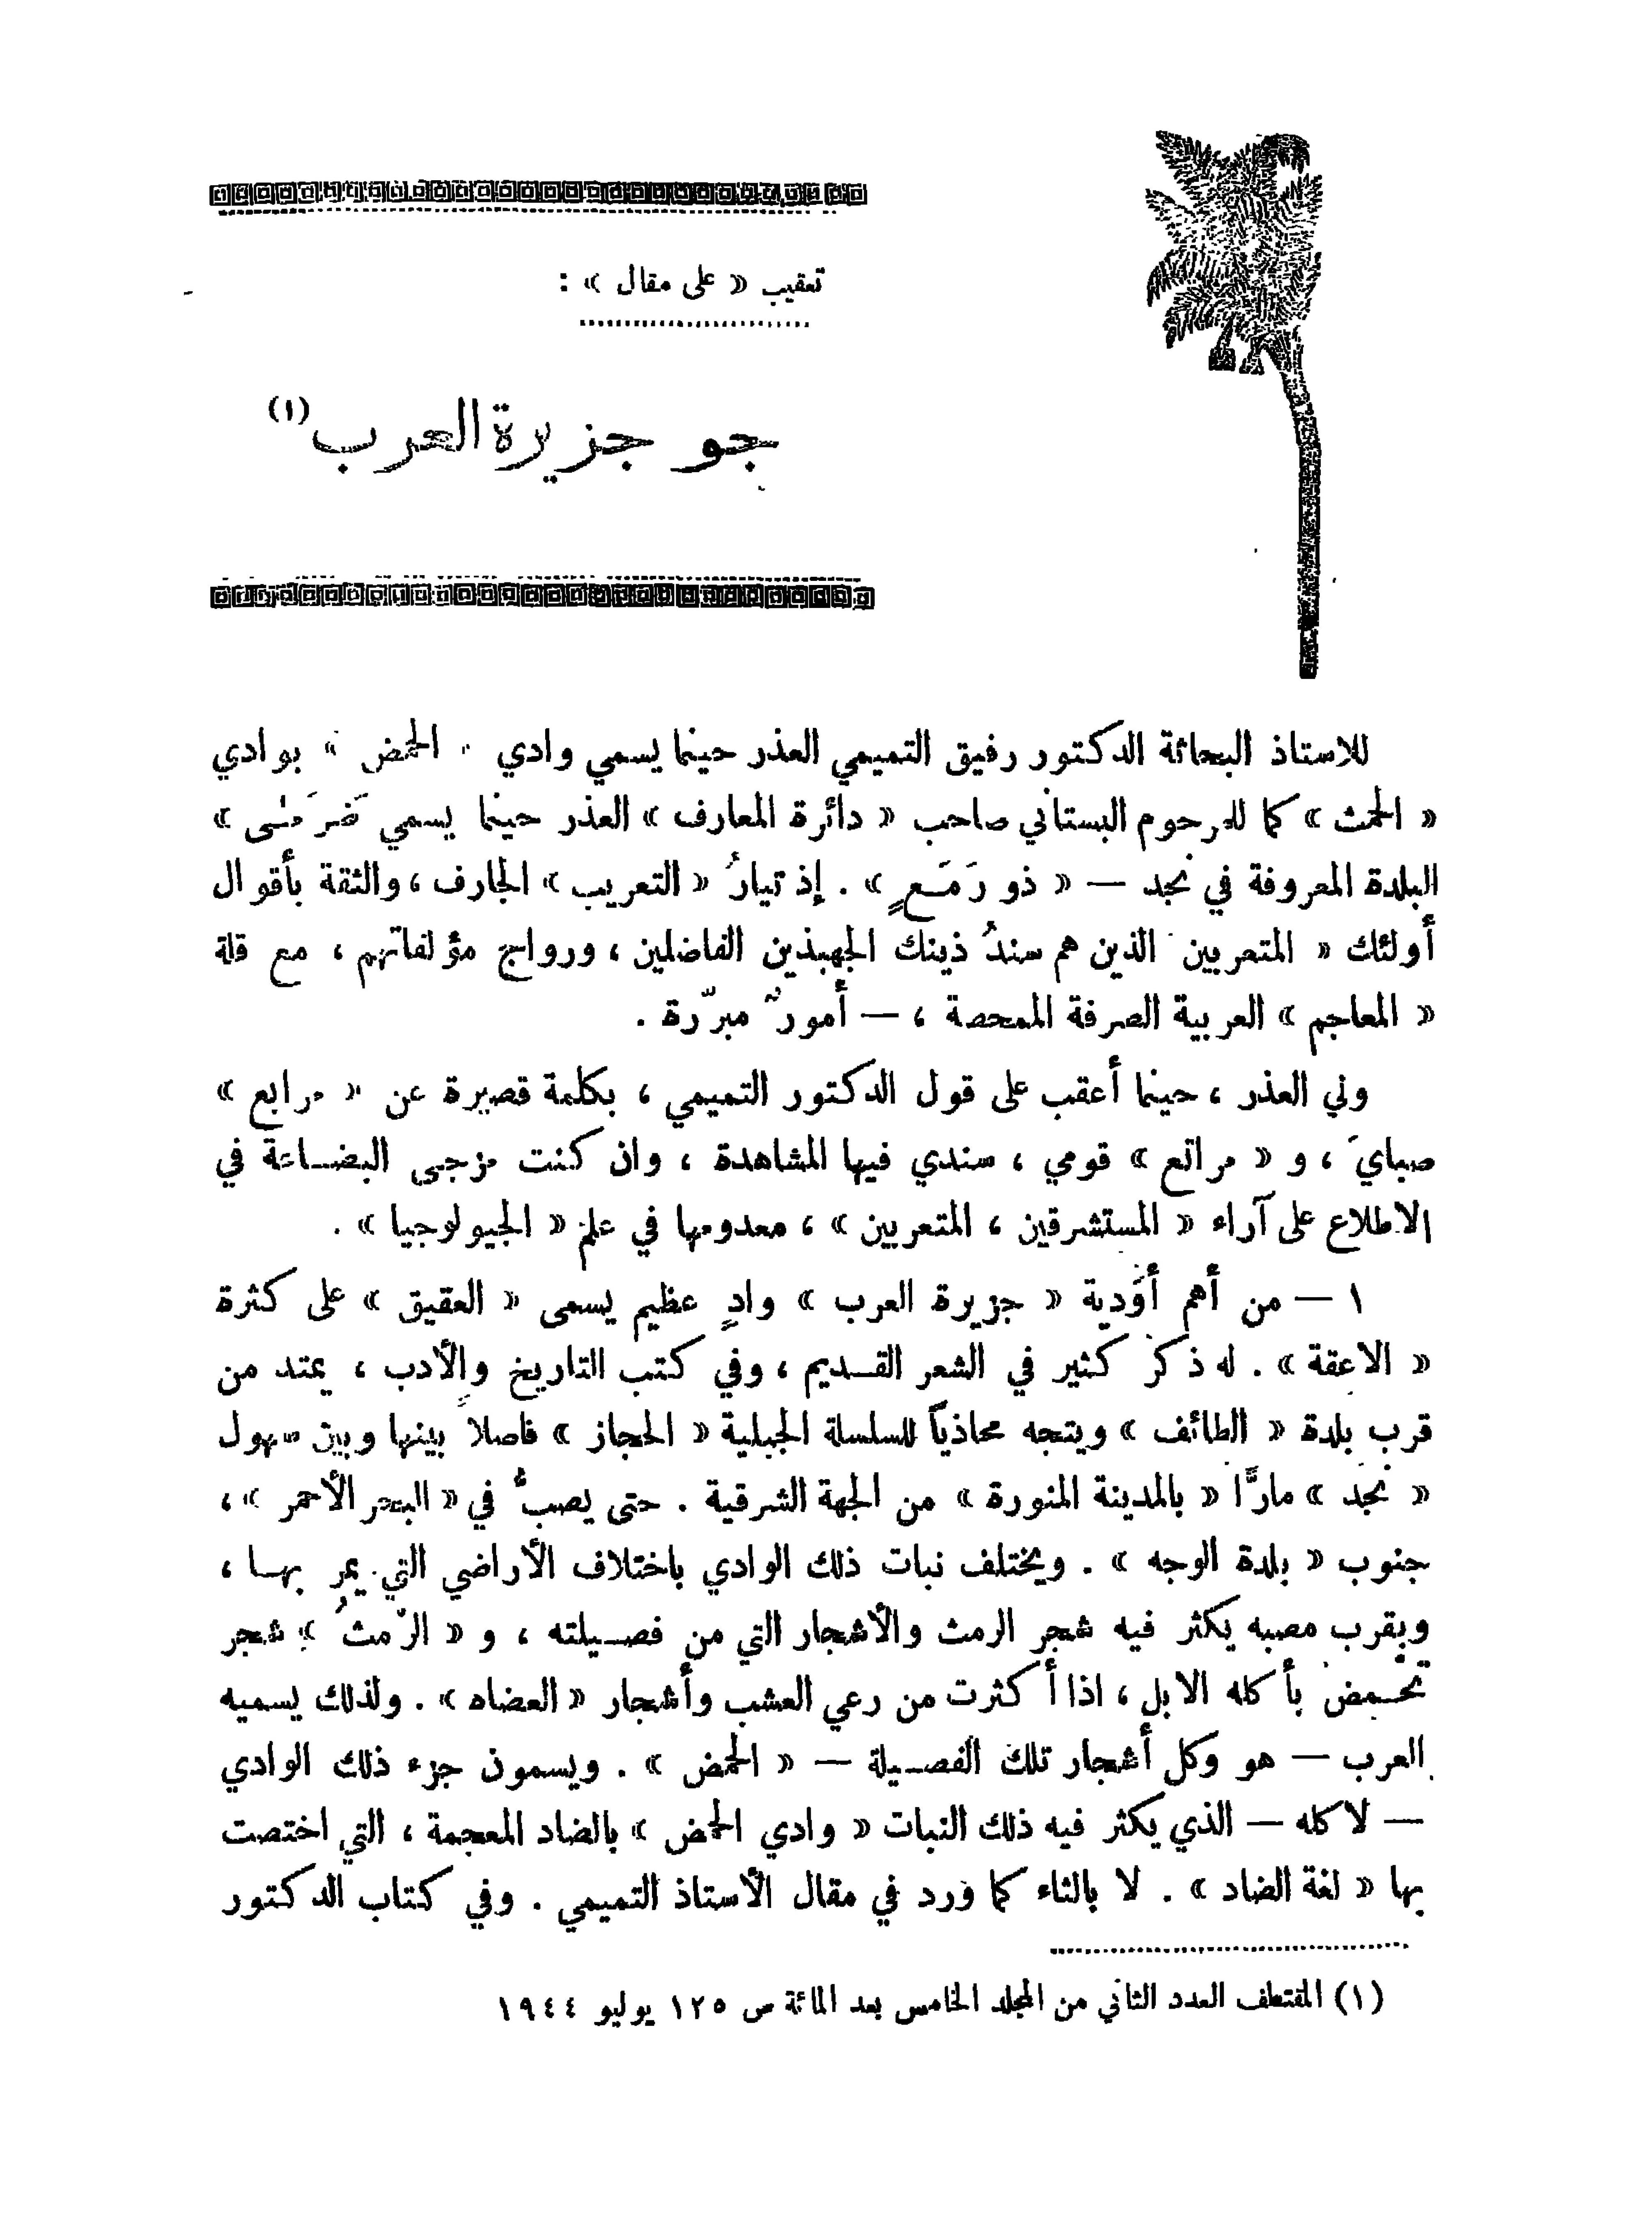 تعقيب « على مقال » :
جو جزيرة العرب (١)
للاستاذ البحاثة الدكتور رفيق التميمي العذر حينما يسمي وادي « الحمض » بوادي
« الحمث » كما للمرحوم البستاني صاحب « دائرة المعارف » العذر حينما يسمي »
البلدة المعروفة في نجد — « ذو رَمَعٍ » . إذ تيارُ « التعريب » الجارف ، والثقة بأقوال
أولئك « المتعربين الذين هم سندُ ذينك الجهبذين الفاضلين ، ورواج مؤلفاتهم ، مع قلة
« المعاجم » العربية الصرفة الممحصة ، — أمورٌ مبرّرة .
ولي العذر ، حينما أعقب على قول الدكتور التميمي ، بكلمة قصيرة عن « مرابع »
صبايَ ، و « مراتع » قومي ، سندي فيها المشاهدة ، وان كنت مزجى البضاعة في
الاطلاع على آراء « المستشرقين ، المتعربين » ، معدومها في علم « الجيولوجيا » .
١ — من أهم أوْدية « جزيرة العرب » وادٍ عظيم يسمى « العقيق » على كثرة
« الاعقة » . له ذكر كثير في الشعر القديم ، وفي كتب التاريخ والأدب ، يمتد من
قرب بلدة « الطائف » ويتجه محاذياً للسلسلة الجبلية « الحجاز » فاصلاً بينها وبين سهول
« نجد » مارًّا « بالمدينة المنورة » من الجهة الشرقية . حتى يصبُّ في « البحر الأحمر » ،
جنوب « بلدة الوجه » . ويختلف نبات ذلك الوادي باختلاف الأراضي التي يمر بها ،
وبقرب مصبه يكثر فيه شجر الرمث والأشجار التي من فصيلته ، و « الرّمثُ » شجر
تحمض بأكله الابل ، اذا أكثرت من رعي العشب وأشجار « العضاه » . ولذلك يسميه
العرب — هو وكل أشجار تلك الفصيلة — « الحمض » . ويسمون جزء ذلك الوادي
— لا كله — الذي يكثر فيه ذلك النبات « وادي الحمض » بالضاد المعجمة ، التي اختصت
بها « لغة الضاد » . لا بالثاء كما ورد في مقال الأستاذ التميمي . وفي كتاب الدكتور
(١) المقتطف العدد الثاني من المجلد الخامس بعد المائة ص ١٢٥ يوليو ١٩٤٤